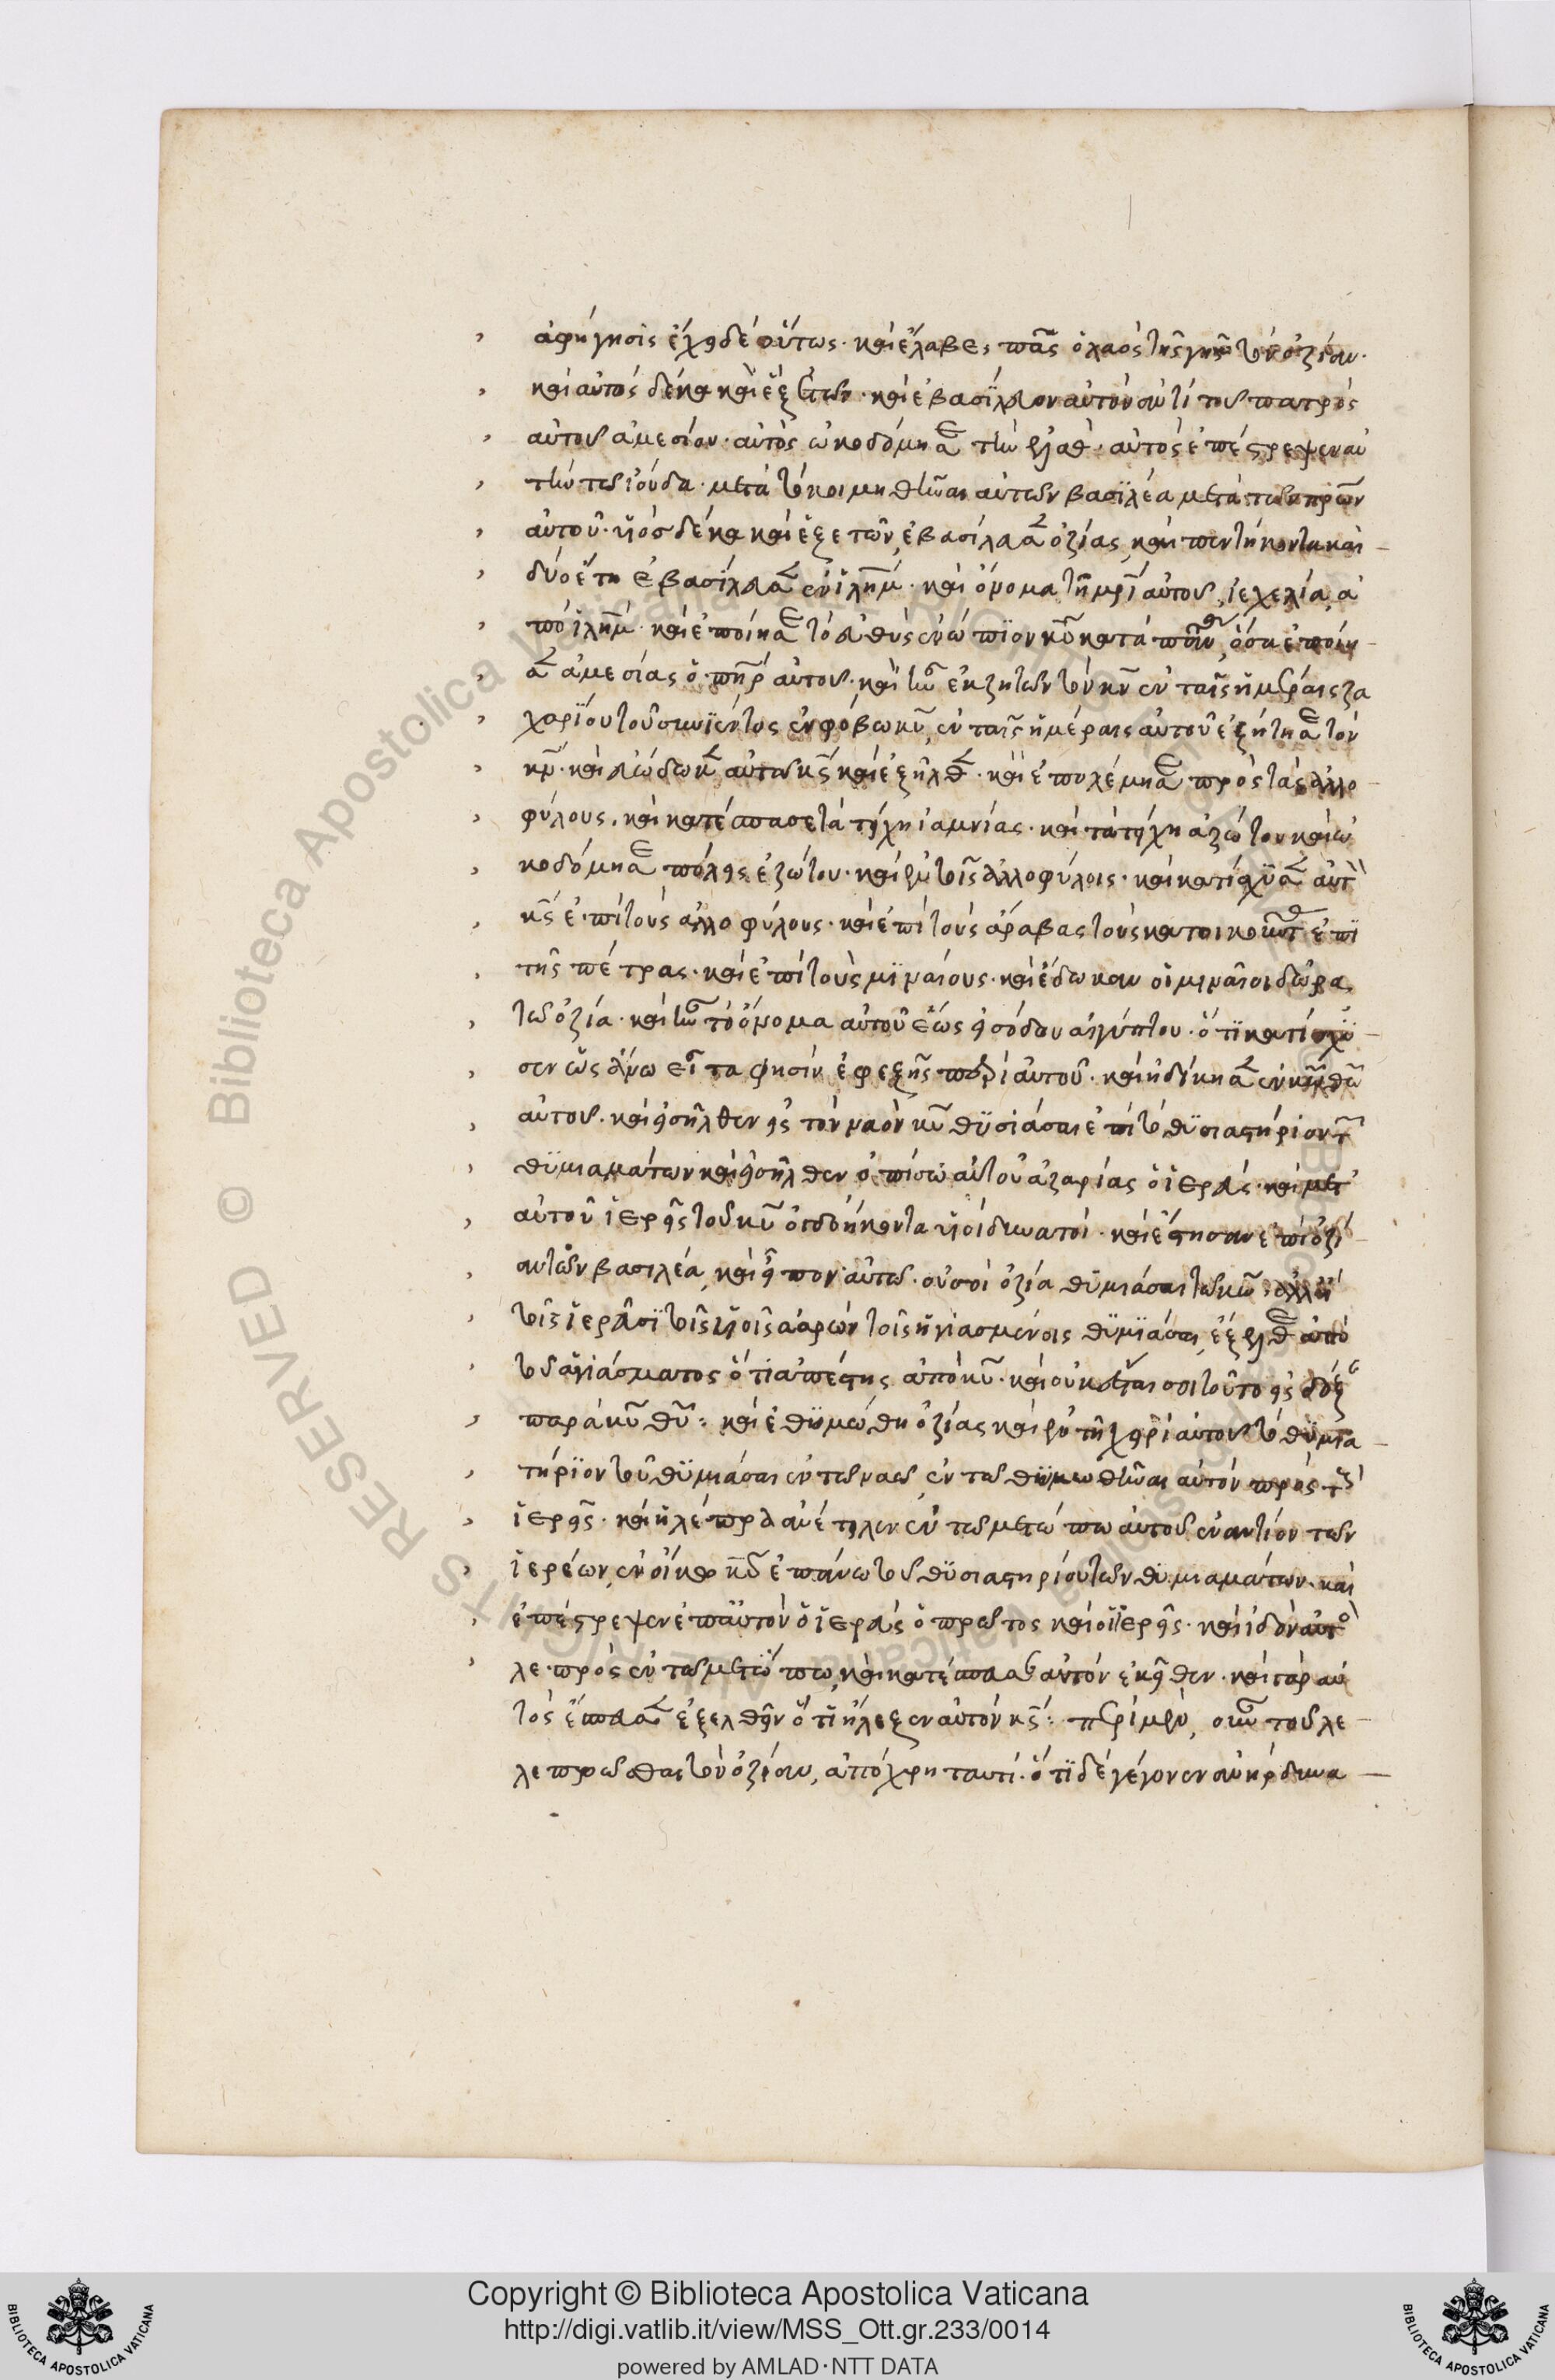 ἀφήγησις ἔχει δὲ οὕτως· καὶ ἔλαβε, πᾶς ὁ λαὸς τῆς γῆς τὸν ὀζίαν·
καὶ αὐτὸς δέκα καὶ ἓξ ἐτῶν· καὶ ἐβασίλευσαν αὐτὸν ἀντὶ τοῦ πατρὸς
αὐτοῦ ἀμεσίου· αὐτὸς ὠκοδόμησε τὴν αἰλάθ· αὐτὸς ἐπέστρεψεν αὐ
τὴν τῶ ἰούδα· μετὰ τὸ κοιμηθῆναι αὐτῶν βασιλέα μετὰ τῶν πρων
αὐτοῦ· υἱὸς δέκα καὶ ἓξ ἐτῶν, ἐβασίλευσεν ὀζίας, καὶ πεντήκοντα καὶ
δύο ἔτη ἐβασίλευσεν ἐν ιλημ· καὶ ὄνομα τῆ μρι αὐτοῦ, ἰεχελία, ἀ
πὸ ιλημ· καὶ ἐποίησε τὸ εὐθὺς ἐνώπιον κυ κατὰ πάντα, ὅσα ἐποίη
σεν ἀμεσίας ὁ πηρ αὐτοῦ· καὶ ἦν ἐκζητῶν τὸν κν ἐν ταῖς ἡμέραις ζα
χαρίου τοῦ συνιέντος ἐν φόβω κυ, ἐν ταῖς ἡμέραις αὐτοῦ ἐζήτησε τὸν
κν· καὶ εὐώδωσεν αὐτῶ κς καὶ ἐξῆλθεν· καὶ ἐπολέμησε πρὸς τοὺς ἀλλο
φύλους. καὶ κατέσπασε τὰ τείχη ἰαμνίας· καὶ τὰ τείχη ἀζώτου καὶ ὠ
κοδόμησε πόλεις ἐζώτου· καὶ ἐν τοῖς ἀλλοφύλοις· καὶ κατίσχυσεν αὐτὸν
κς ἐπὶ τοὺς ἀλλοφύλους· καὶ ἐπὶ τοὺς ἄραβας τοὺς κατοικοῦντας ἐπὶ
τῆς πέτρας· καὶ ἐπὶ τοὺς μιναίους· καὶ ἔδωκαν οἱ μιναῖοι δῶρα
τῶ ὀζία· καὶ ἦν τὸ ὄνομα αὐτοῦ ἕως εἰσόδου αἰγύπτου· ὅτι κατίσχυ
σεν ἕως ἄνω εἶτα φησὶν ἐφεξῆς περὶ αὐτοῦ· καὶ ἠδίκησεν ἐν κω θω
αὐτοῦ· καὶ εἰσῆλθεν εἰς τὸν ναὸν κυ θυσιάσαι ἐπὶ τὸ θυσιαστήριον τῶν
θυμιαμάτων καὶ εἰσῆλθεν ὀπίσω αὐτοῦ ἀζαρίας ὁ ἱερεύς· καὶ μετ
αὐτοῦ ἱερεῖς τοῦ κυ ὀγδοήκοντα υἱοὶ δυνατοί· καὶ ἔστησαν ἐπὶ ὀζί
αν τὸν βασιλέα, καὶ εἶπον αὐτῶ· οὐ σοὶ ὀζία θυμιάσαι τῶ κω, ἀλλ' ἢ
τοῖς ἱερεῦσι τοῖς υἱοῖς ἀαρὼν τοῖς ἡγιασμένοις θυμιάσαι, ἔξελθε ἀπὸ
τοῦ ἁγιάσματος ὅτι ἀπέστης ἀπὸ κυ· καὶ οὐκ ἔσται σοι τοῦτο εἰς δόξαν
παρὰ κυ θυ: καὶ ἐθυμώθη ὀζίας καὶ ἐν τῆ χειρὶ αὐτοῦ τὸ θυμια
τήριον τοῦ θυμιάσαι ἐν τῶ ναῶ, ἐν τῶ θυμωθῆναι αὐτὸν πρὸς τοὺς
ἱερεῖς· καὶ ἡ λέπρα ἀνέτειλεν ἐν τῶ μετώπω αὐτοῦ ἐναντίον τῶν
ἱερέων, ἐν οἴκω κυ ἐπάνω τοῦ θυσιαστηρίου τῶν θυμιαμάτων. καὶ
ἐπέστρεψεν ἐπ' αὐτὸν ὁ ἱερεὺς ὁ πρῶτος καὶ οἱ ἱερεῖς· καὶ ἰδοὺ αὐτὸς
λεπρὸς ἐν τῶ μετώπω, καὶ κατέσπευσαν αὐτὸν ἐκεῖθεν· καὶ γὰρ αὐ
τὸς ἔσπευσεν ἐξελθεῖν ὅτι ἤλεγξεν αὐτὸν κς: περὶ μὲν, οὖν τοῦ λε
λεπρῶσθαι τὸν ὀζίαν, ἀπόχρη ταυτί· ὅτι δὲ γέγονεν ἀνὴρ δυνα
Copyright © Biblioteca Apostolica Vaticana
http://digi.vatlib.it/view/MSS_Ott.gr.233/0014
powered by AMLAD·NTT DATA